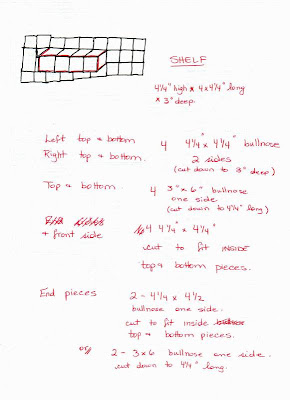 SHELF
4¼" high x 4x4¼" long
x 3" deep.
Left top + bottom 4 4¼" x 4¼" bullnose
Right top + bottom. 2 sides
(cut down to 3" deep)
Top + bottom. 4 3" x 6" bullnose
one side
(cut down to 4¼" long)
4 4¼" x 4¼"
+ front side cut to fit INSIDE
top + bottom pieces.
End pieces 2 - 4¼ x 4½
bullnose one side.
cut to fit inside
top + bottom pieces.
or 2 - 3x6 bullnose one side.
cut down to 4¼" long.